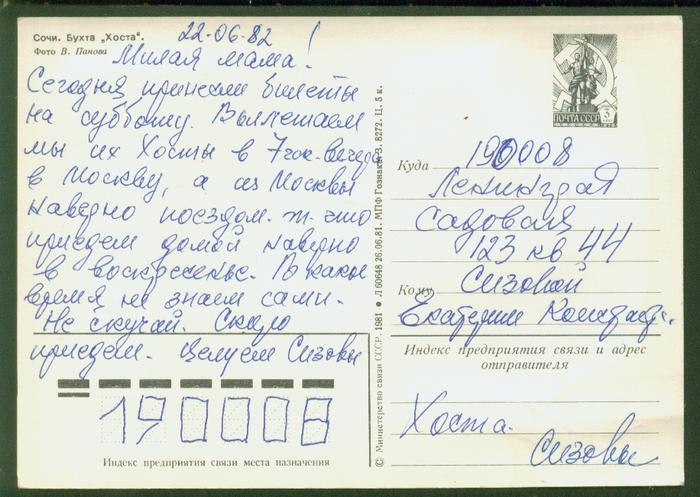 Сочи. Бухта „Хоста“.
Фото В. Панова
22-06-82
Милая мама!
Сегодня принесли билеты
на субботу. Вылетаем
мы их Хосты в 7 час. вечера
в Москву, а из Москвы
наверно поездом. т. что
приедем домой наверно
в воскресенье. В какое
время не знаем сами.
Не скучай. Скоро
приедем. Целуем Сизовы
190008
Индекс предприятия связи места назначения
© Министерство связи СССР. 1981 ● Л 60648 26.06.81. МПФ Гознака. З. 8272. Ц. 5 к.
ПОЧТА СССР 3
Куда 190008
Ленинград
Садовая
123 кв 44
Кому Сизовой
Екатерине
Индекс предприятия связи и адрес
отправителя
Хоста.
Сизовы